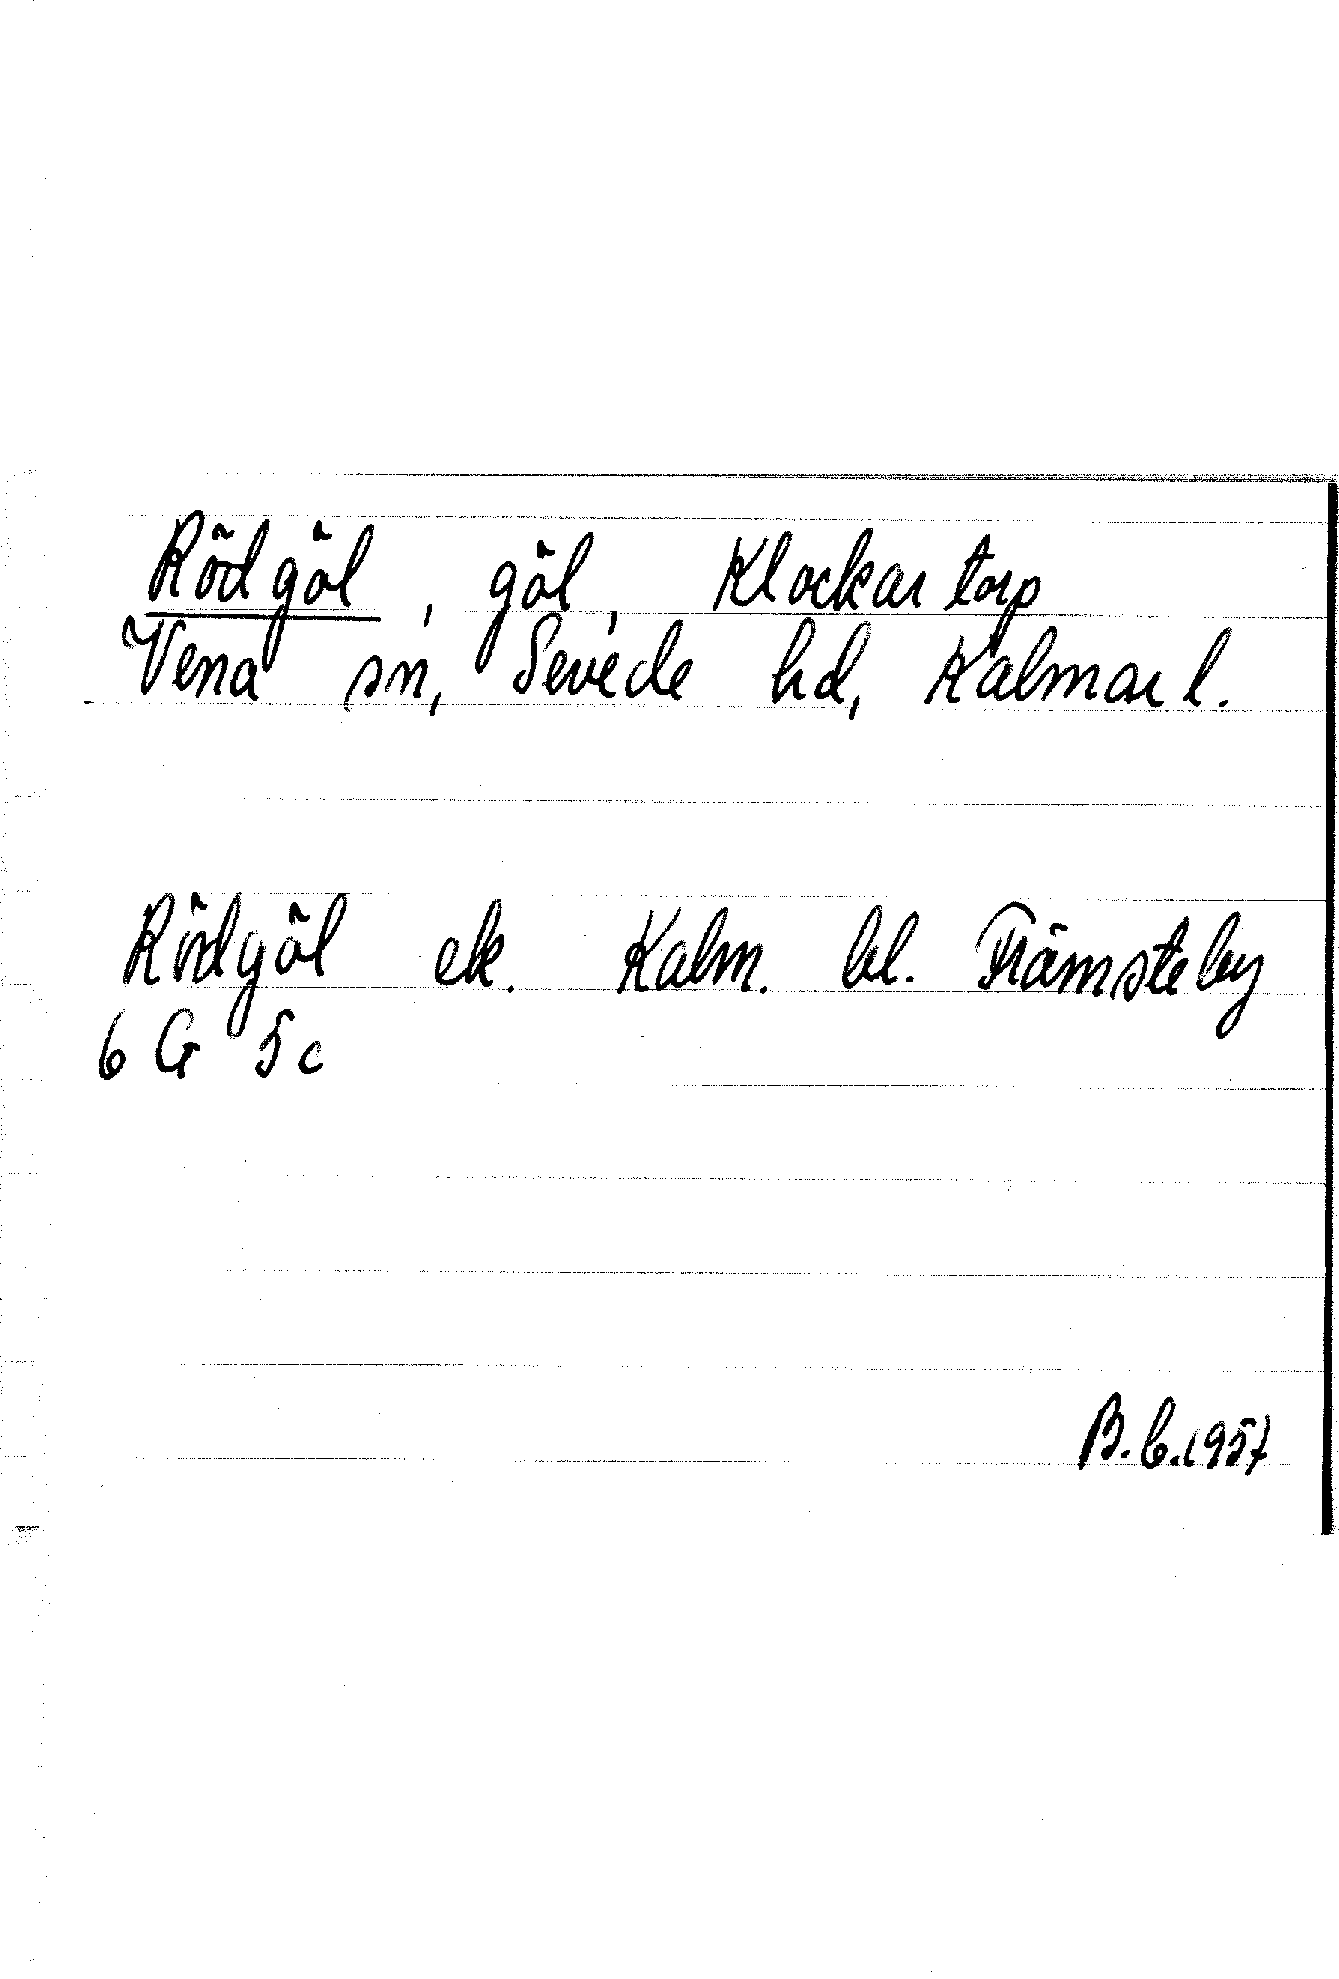 Rödgöl, göl, Klockartorp
Vena sn, Sevede hd, Kalmar l.
Rödgöl ek. Kalm. bl. Främsteby
6 G 5c
B.G.1957